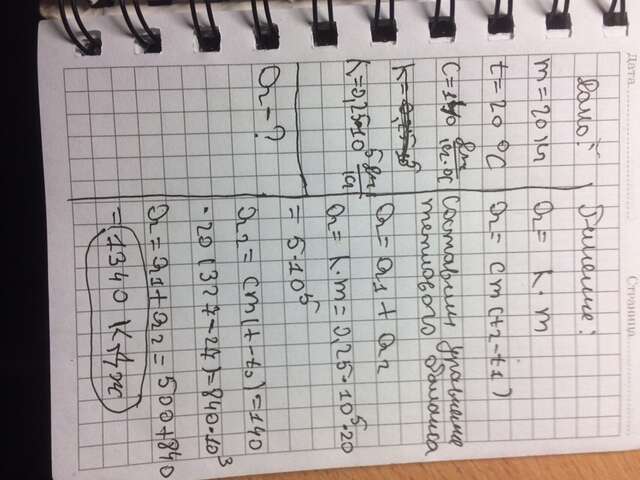 Дата
Страница
Дано:
m = 20 кг
t = 20 °C
C = 140 Дж/кг·°C
K = 0,25·10⁵ Дж/кг
Q - ?
Решение:
Q = K · m
Q = cm(t2-t1)
Составим уравнение
теплового баланса
Q = Q1 + Q2
Q = K·m = 0,25·10⁵·20
= 5·10⁵
Q2 = cm(t-t1) = 140
·20(327-27) = 840·10³
Q = Q1+Q2 = 500+840
= 1340 КДж